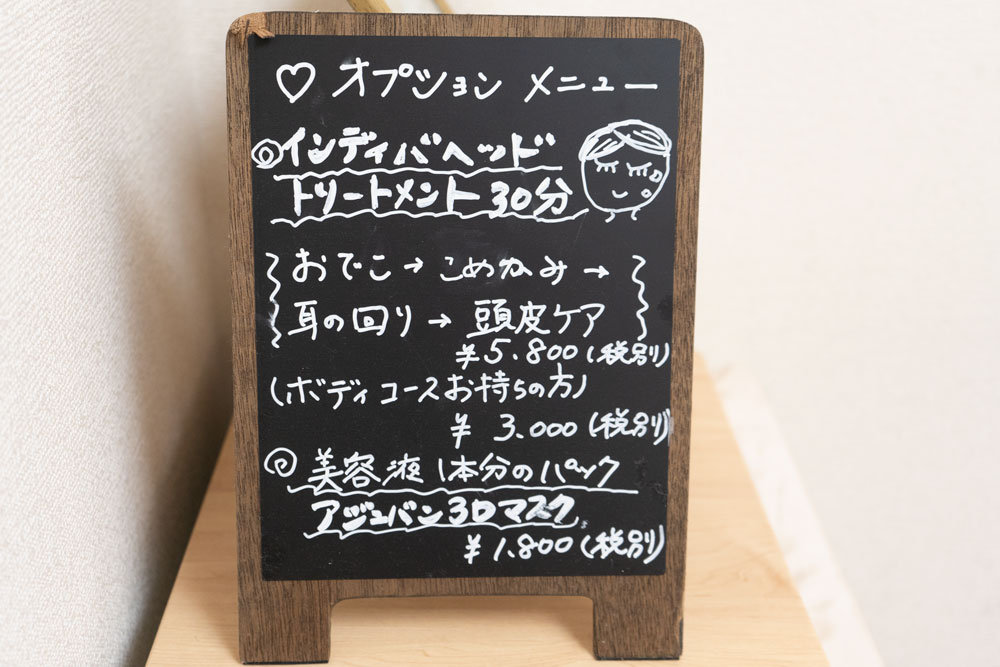 ♡ オプション メニュー
◎インディバヘッド
トリートメント30分
おでこ→こめかみ→
耳の回り→頭皮ケア
¥5.800(税別)
(ボディコースお持ちの方)
¥ 3.000(税別)
◎美容液1本分のパック
アジュバン3Dマスク
¥1.800(税別)